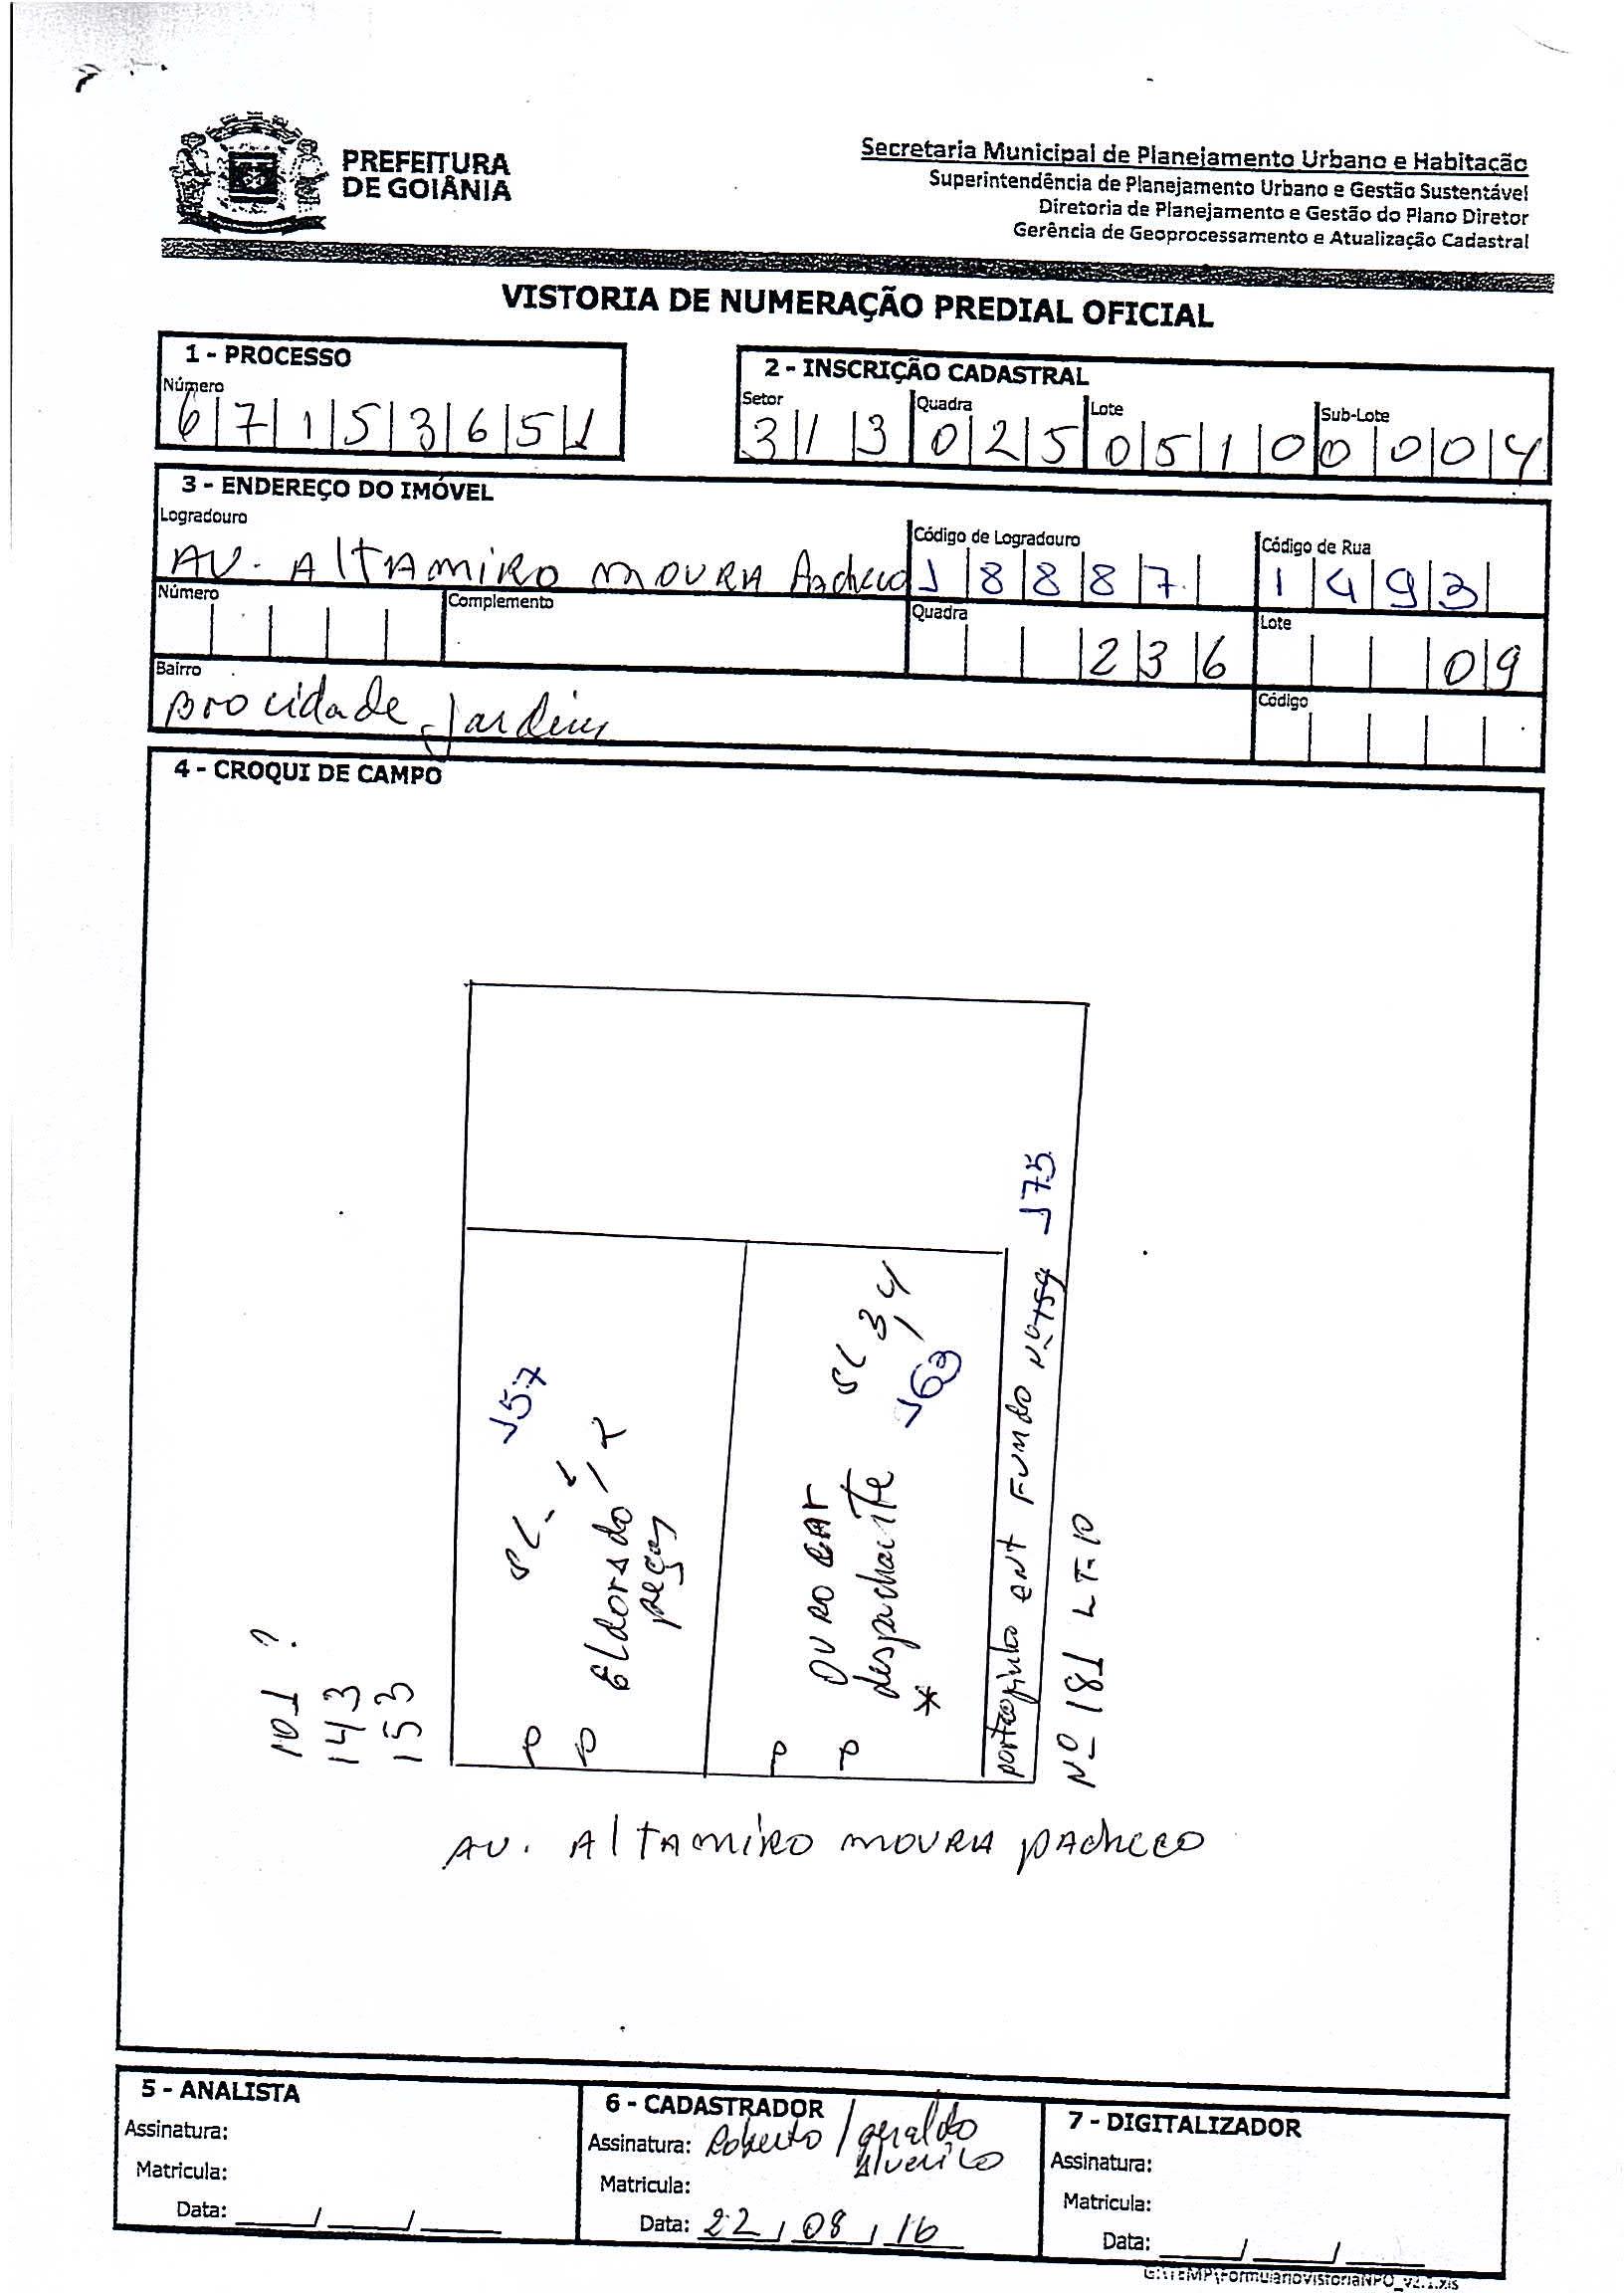 PREFEITURA
DE GOIÂNIA
Secretaria Municipal de Planejamento Urbano e Habitação
Superintendência de Planejamento Urbano e Gestão Sustentável
Diretoria de Planejamento e Gestão do Plano Diretor
Gerência de Geoprocessamento e Atualização Cadastral
VISTORIA DE NUMERAÇÃO PREDIAL OFICIAL
1 - PROCESSO
Número
6 7 1 5 3 6 5 1
2 - INSCRIÇÃO CADASTRAL
Setor Quadra Lote Sub-Lote
3 1 3 0 2 5 0 5 1 0 0 0 0 4
3 - ENDEREÇO DO IMÓVEL
Logradouro Código de Logradouro Código de Rua
AV. AlTAmiRO mOURA Pacheco 1 8 8 8 7 1 4 9 3
Número Complemento Quadra Lote
2 3 6 0 9
Bairro Código
procidade Jardim
4 - CROQUI DE CAMPO
101 ?
143
153
157
SL - 1/2
Eldorado
peças
SL 3,4
163
OURO CAR
despachante
*
portãozinho ent FUNDO Nº 159 175
Nº 181 LT-10
AV. AlTAmiRO mOURA pAcheco
5 - ANALISTA
Assinatura:
Matricula:
Data: ____/____/____
6 - CADASTRADOR
Assinatura: Roberto / geraldo
Matricula:
Data: 22/08/16
7 - DIGITALIZADOR
Assinatura:
Matricula:
Data: ____/____/____
G:\TEMP\FormularioVistoriaNPO_v2.1.xls